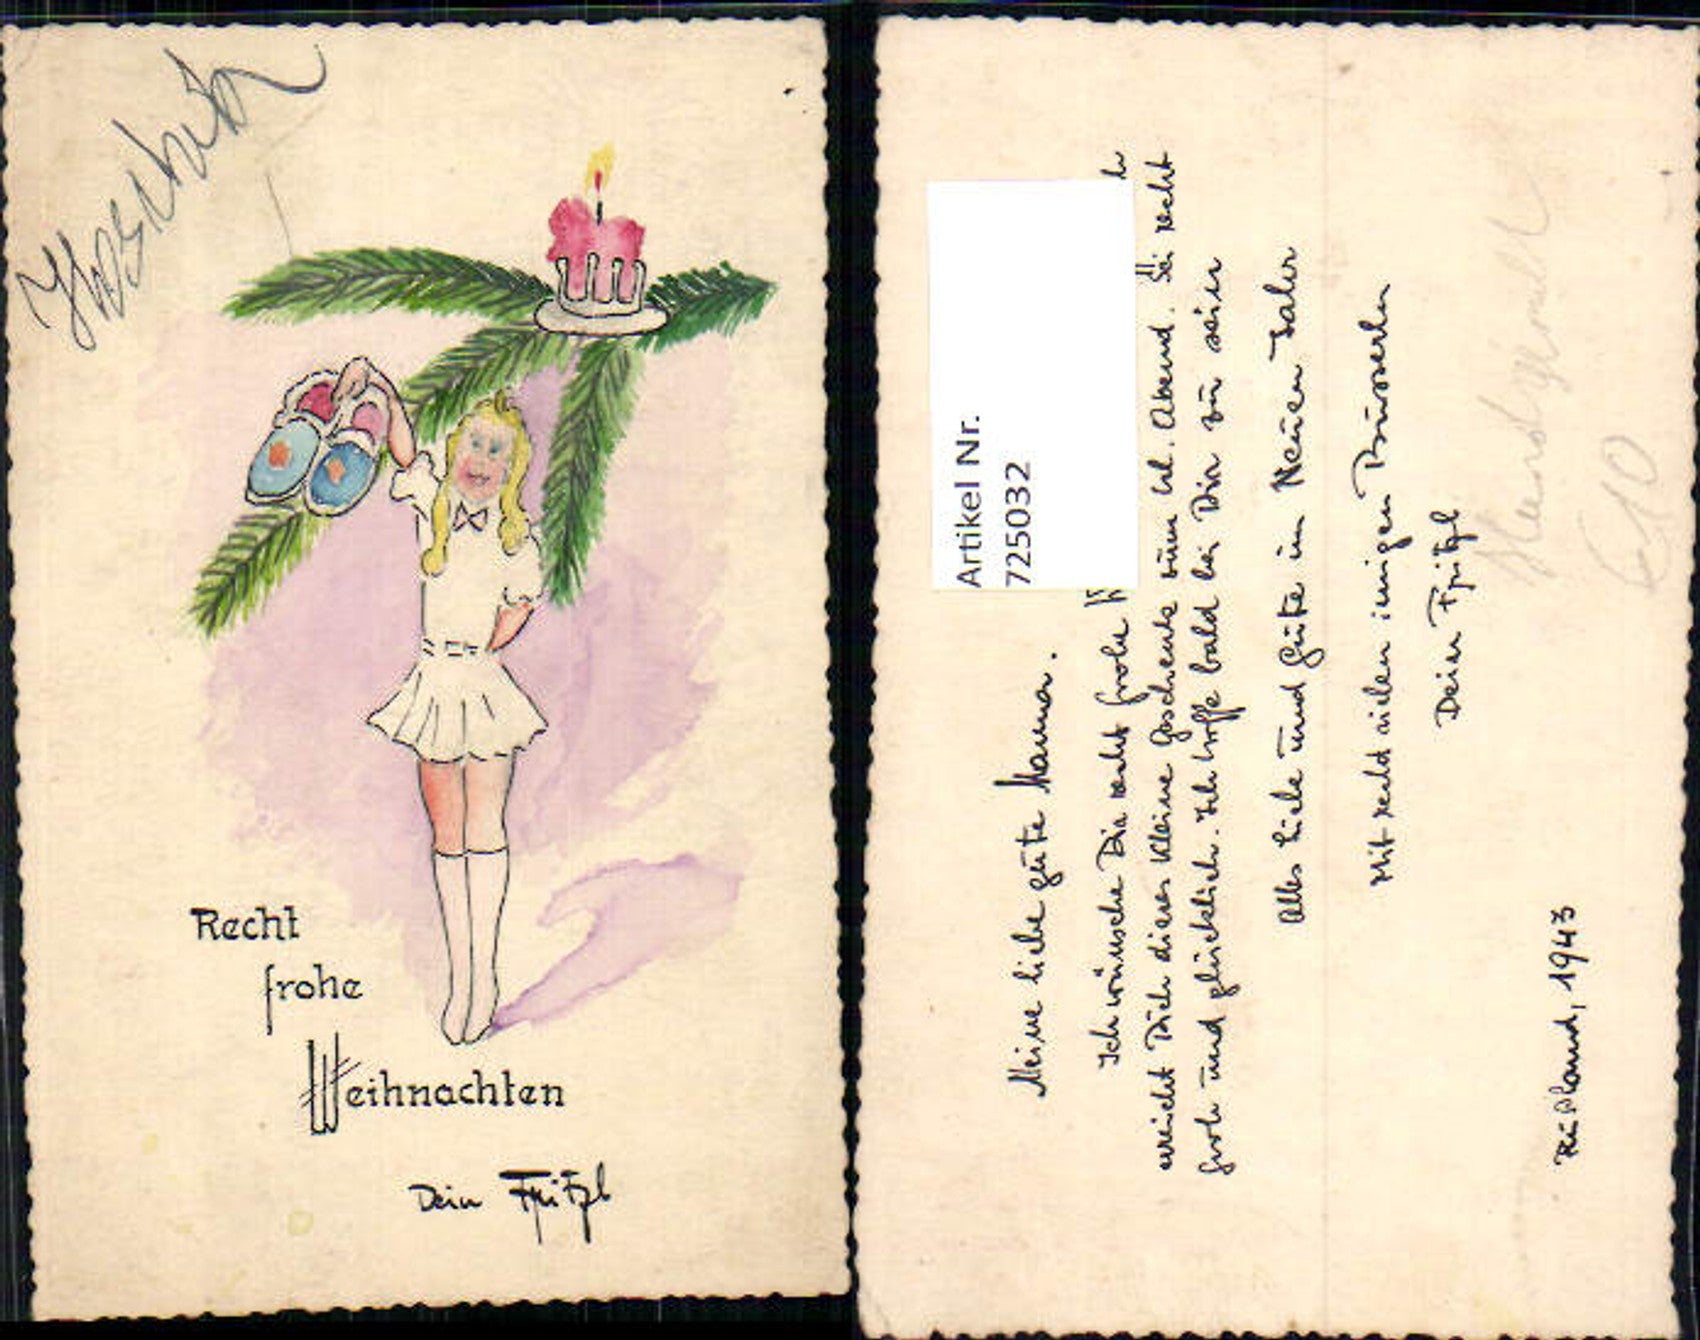 Recht
frohe
Weihnachten
Dein Fritzl
Artikel Nr.
725032
Meine liebe gute Mama.
Ich wünsche Dir recht frohe
erreicht Dich dieses kleine Geschenk zum hl. Abend. Sei recht
froh und glücklich. Ich hoffe bald bei Dir zu sein
Alles Liebe und Gute im Neuen Jahr
Mit recht vielen innigen Busserln
Dein Fritzl
Rußland, 1943
€10